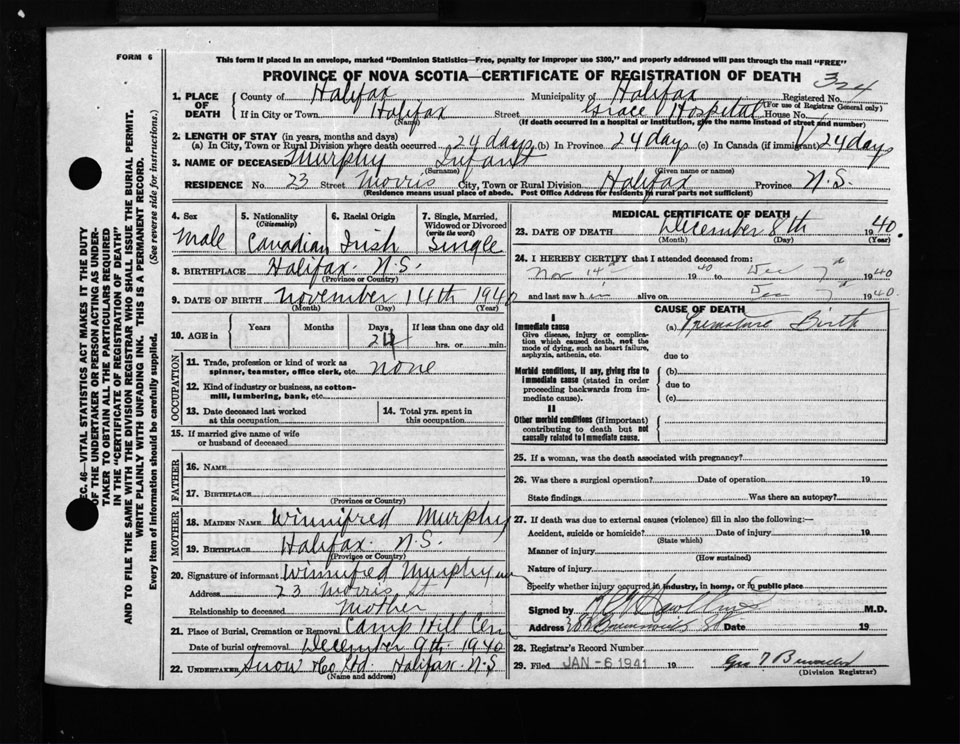 FORM 6
This form if placed in an envelope, marked "Dominion Statistics—Free, penalty for improper use $300," and properly addressed will pass through the mail "FREE"
PROVINCE OF NOVA SCOTIA—CERTIFICATE OF REGISTRATION OF DEATH
324
1. PLACE OF DEATH County of Halifax Municipality of Halifax Registered No. (For use of Registrar General only)
If in City or Town Halifax Street Grace Hospital House No.
(Name) (If death occurred in a hospital or institution, give the name instead of street and number)
2. LENGTH OF STAY (in years, months and days)
(a) In City, Town or Rural Division where death occurred 24 days (b) In Province 24 days (c) In Canada (if immigrant) 24 days
3. NAME OF DECEASED Murphy Infant
(Surname) (Given name or names)
RESIDENCE No. 23 Street Morris City, Town or Rural Division Halifax Province N.S.
(Residence means usual place of abode. Post Office Address for residents in rural parts not sufficient)
4. Sex 5. Nationality (Citizenship) 6. Racial Origin 7. Single, Married, Widowed or Divorced (write the word)
Male Canadian Irish Single
8. BIRTHPLACE Halifax. N.S.
(Province or Country)
9. DATE OF BIRTH November 14th 1940
(Month) (Day) (Year)
10. AGE in Years Months Days 24 If less than one day old hrs. or min.
OCCUPATION
11. Trade, profession or kind of work as spinner, teamster, office clerk, etc. none
12. Kind of industry or business, as cotton-mill, lumbering, bank, etc.
13. Date deceased last worked at this occupation 14. Total yrs. spent in this occupation
15. If married give name of wife or husband of deceased
FATHER
16. NAME
17. BIRTHPLACE
(Province or Country)
MOTHER
18. MAIDEN NAME Winnifred Murphy
19. BIRTHPLACE Halifax. N.S.
(Province or Country)
20. Signature of informant Winnifred Murphy
Address 23 Morris St.
Relationship to deceased Mother
21. Place of Burial, Cremation or Removal Camp Hill Cem
Date of burial or removal December 9th. 1940
22. UNDERTAKER Snow & Co Ltd. Halifax. N.S.
(Name and address)
MEDICAL CERTIFICATE OF DEATH
23. DATE OF DEATH December 8th 1940.
(Month) (Day) (Year)
24. I HEREBY CERTIFY that I attended deceased from:
Nov 14th 1940 to Dec 7th 1940
and last saw him alive on Dec 7th 1940.
CAUSE OF DEATH
I
Immediate cause (a) Premature Birth
Give disease, injury or complication which caused death, not the mode of dying, such as heart failure, asphyxia, asthenia, etc.
due to
Morbid conditions, if any, giving rise to immediate cause (stated in order proceeding backwards from immediate cause).
(b)
due to
(c)
II
Other morbid conditions (if important) contributing to death but not causally related to immediate cause.
25. If a woman, was the death associated with pregnancy?
26. Was there a surgical operation? Date of operation 19
State findings Was there an autopsy?
27. If death was due to external causes (violence) fill in also the following:—
Accident, suicide or homicide? Date of injury 19
(State which)
Manner of injury
(How sustained)
Nature of injury
Specify whether injury occurred in industry, in home, or in public place
Signed by M.D.
Address Date 19
28. Registrar's Record Number
29. Filed JAN - 6 1941 19
(Division Registrar)
SEC. 46—VITAL STATISTICS ACT MAKES IT THE DUTY
OF THE UNDERTAKER OR PERSON ACTING AS UNDER-
TAKER TO OBTAIN ALL THE PARTICULARS REQUIRED
IN THE "CERTIFICATE OF REGISTRATION OF DEATH"
AND TO FILE THE SAME WITH THE DIVISION REGISTRAR WHO SHALL ISSUE THE BURIAL PERMIT.
WRITE PLAINLY WITH UNFADING INK. THIS IS A PERMANENT RECORD.
Every item of information should be carefully supplied. (See reverse side for instructions.)